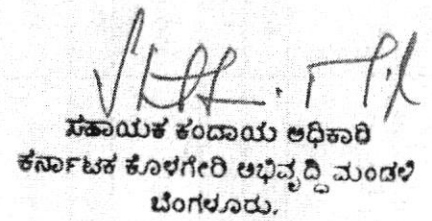 ಸಹಾಯಕ ಕಂದಾಯ ಅಧಿಕಾರಿ
ಕರ್ನಾಟಕ ಕೊಳಗೇರಿ ಅಭಿವೃದ್ಧಿ ಮಂಡಳಿ
ಬೆಂಗಳೂರು.